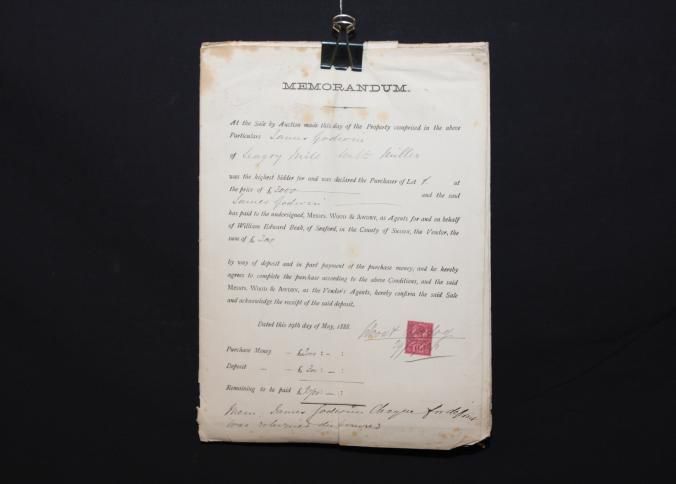 MEMORANDUM.
At the Sale by Auction made this day of the Property comprised in the above
Particulars James Godwin
of Seagry Mill Wilts Miller
was the highest bidder for and was declared the Purchaser of Lot 1. at
the price of £3000 and the said
James Godwin
has paid to the undersigned, MESSRS. WOOD & AWDRY, as Agents for and on behalf
of William Edward Beak, of Seaford, in the County of SUSSEX, the Vendor, the
sum of £300
by way of deposit and in part payment of the purchase money, and he hereby
agrees to complete the purchase according to the above Conditions, and the said
MESSRS. WOOD & AWDRY, as the Vendor's Agents, hereby confirm the said Sale
and acknowledge the receipt of the said deposit.
Dated this 29th day of May, 1888.
Purchase Money - £3000 : - :
Deposit - - £300 : - :
Remaining to be paid £2700 - :
Mem. James Godwin Cheque for deposit
was returned dishonored